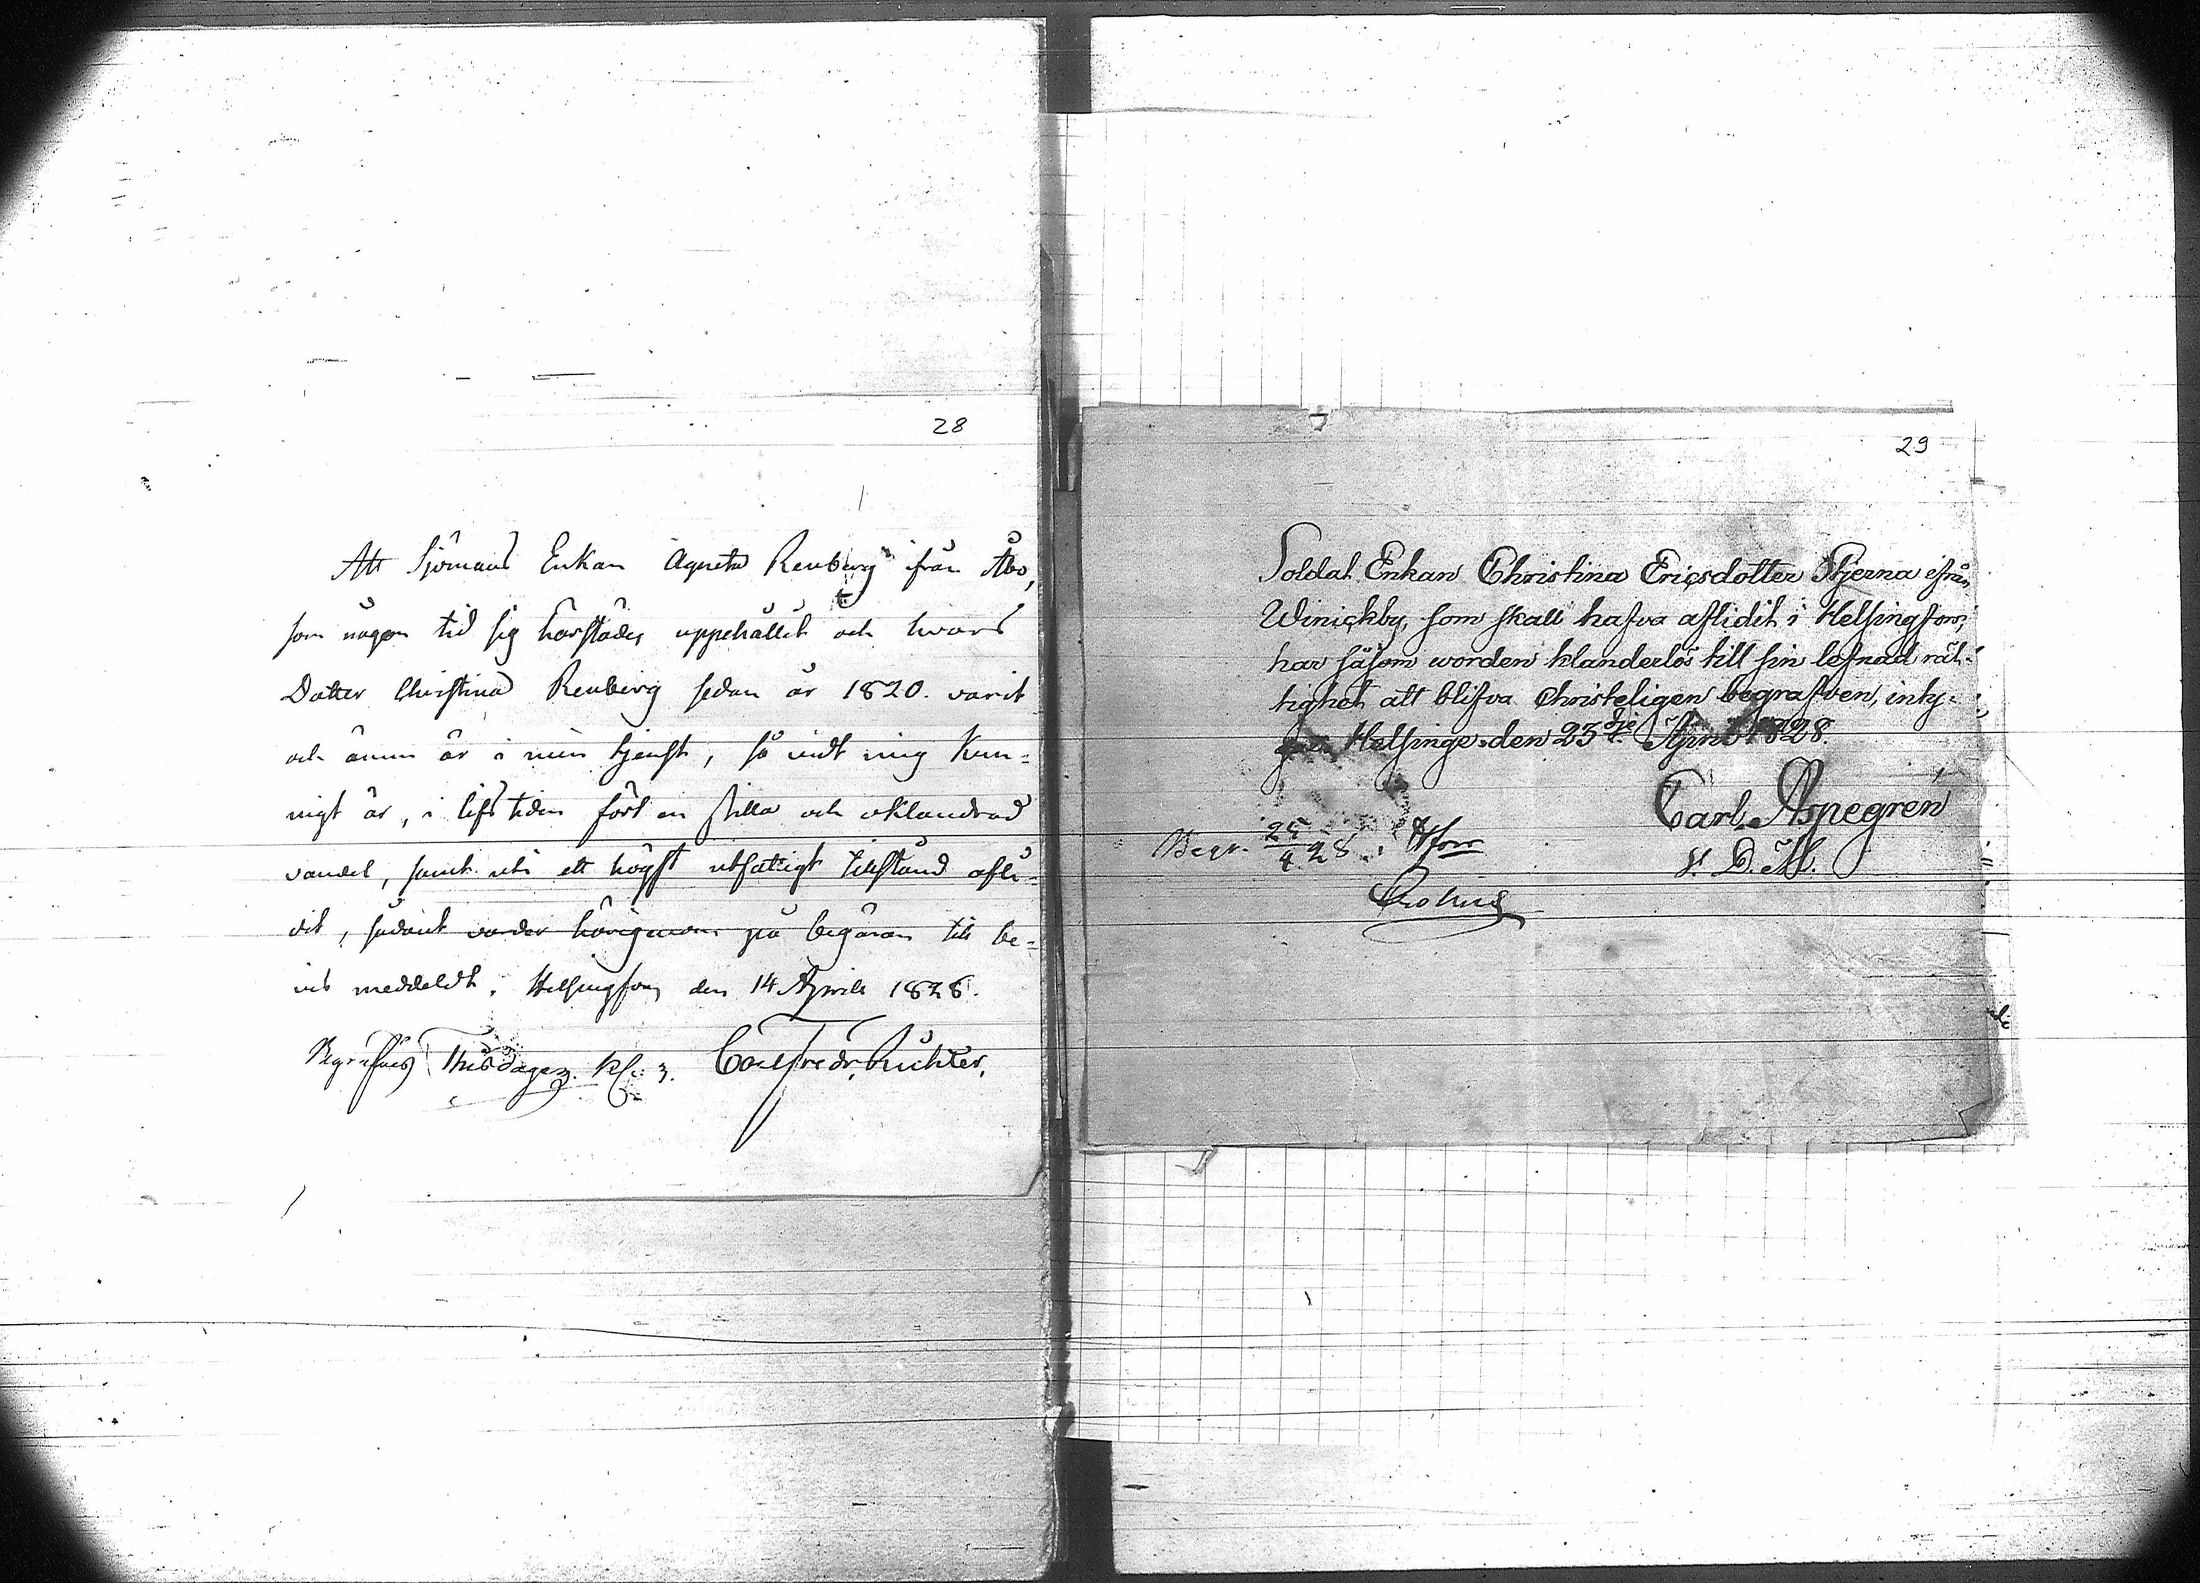 28
Att Sjömans Enkan Agneta Renberg från Åbo,
som någon tid sig härstädes uppehållit och hvars
Dotter Christina Renberg sedan år 1820. varit
och ännu är i min tjenst, så vidt mig kun=
nigt är, i lifstiden fört en stilla och oklandrad
vandel, samt uti ett högst utfattigt tillstånd afli=
dit, sådant varder härigenom på begäran till be=
vis meddeldt. Helsingfors den 14 Aprill 1828.
Begrafves Thisdagen kl. 3. Carl Fredr. Richter.
29
Soldat Enkan Christina Ericsdotter Stjerna ifrån
Winickby, som skall hafva aflidit i Helsingfors,
har såsom worden klanderlös till sin lefnad rät=
tighet att blifva Christeligen begrafven, inty=
gar Helsinge den 23dje April 1828.
Carl Aspegren
v. D. M.
Begr. 25/4 28 Hfors